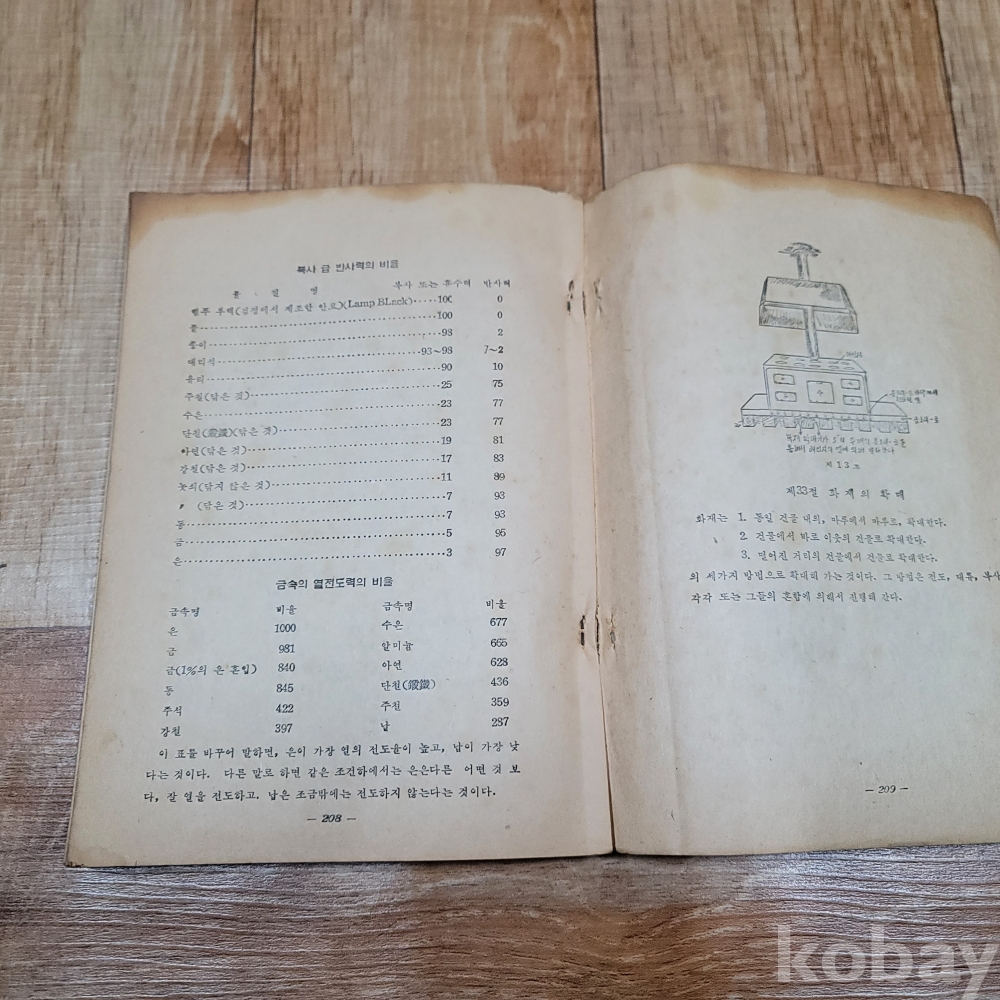 복사 급 반사력의 비율
물 질 명 복사 또는 흡수력 반사력
(검정에서 제조한 안료)(Lamp BLack)·····100 0
물·····100 0
종이·····98 2
대리석·····93~98 7~2
유리·····90 10
주철(닦은 것)·····25 75
수은·····23 77
단철(鍛鐵)(닦은 것)·····23 77
아연(닦은 것)·····19 81
강철(닦은 것)·····17 83
놋쇠(닦지 않은 것)·····11 89
〃 (닦은 것)·····7 93
동·····7 93
금·····5 95
은·····3 97
금속의 열전도력의 비율
금속명 비율 금속명 비율
은 1000 수은 677
금 981 알미늄 665
금(1%의 은 혼입) 840 아연 628
동 845 단철(鍛鐵) 436
주석 422 주철 359
강철 397 납 287
이 표를 바꾸어 말하면, 은이 가장 열의 전도율이 높고, 납이 가장 낮
다는 것이다. 다른 말로 하면 같은 조건하에서는 은은다른 어떤 것 보
다, 잘 열을 전도하고. 납은 조금밖에는 전도하지 않는다는 것이다.
— 208 —
제 1 3 도
제33절 화재의 확대
화재는 1. 동일 건물 내의, 마루에서 마루로, 확대한다.
2. 건물에서 바로 이웃의 건물로 확대한다.
3. 떨어진 거리의 건물에서 건물로 확대한다.
의 세가지 방법으로 확대해 가는 것이다. 그 방법은 전도, 대류, 복사
각각 또는 그들의 혼합에 의해서 진행해 간다.
— 209 —
kobay